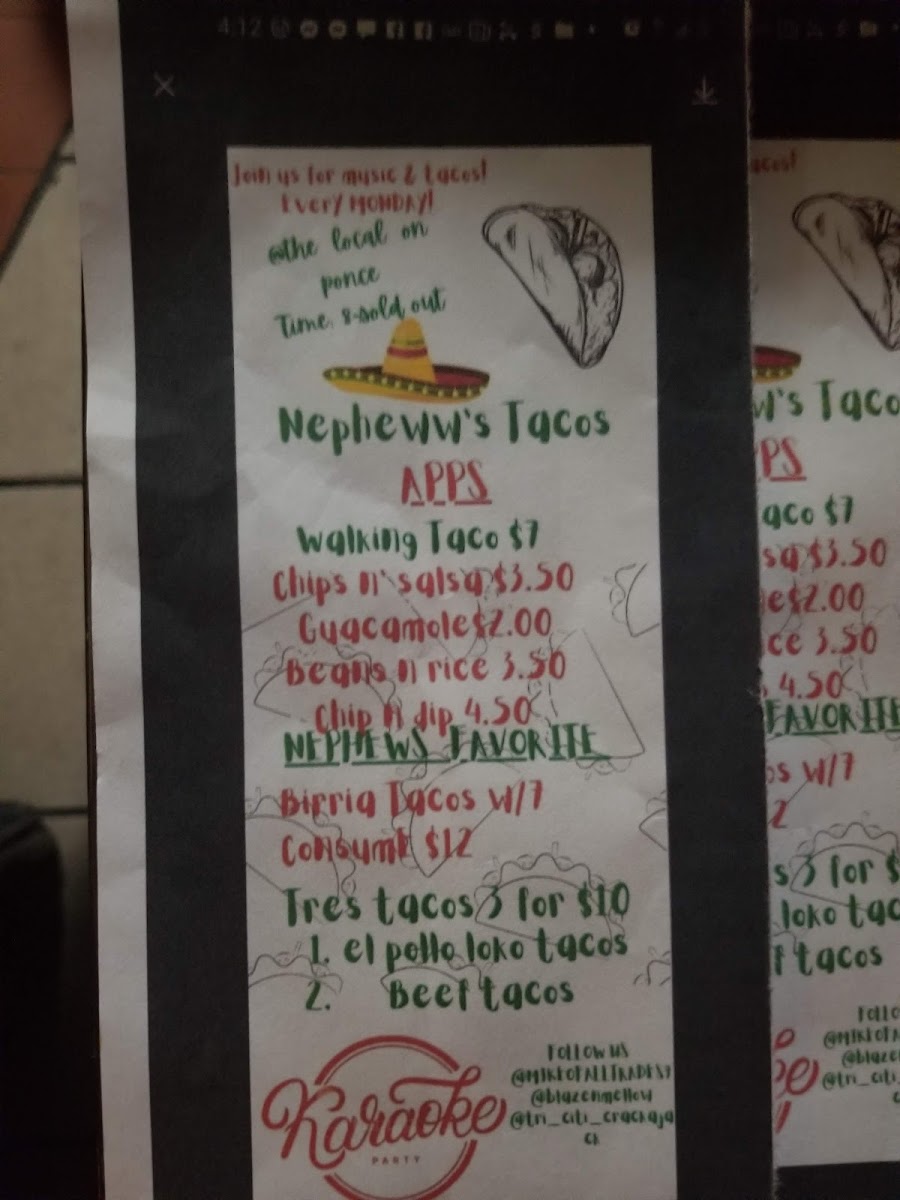 4:12
Join us for music & tacos!
Every MONDAY!
@the local on
ponce
Time: 8-sold out
Nepheww's Tacos
APPS
Walking Taco $7
Chips n' salsa $3.50
Guacamole $2.00
Beans n rice 3.50
Chip n dip 4.50
NEPHEWS FAVORITE
Birria Tacos w/7
Consume $12
Tres tacos 3 for $10
1. el pollo loko tacos
2. Beef tacos
Karaoke
PARTY
Follow us
@MIKEOFALLTRADES7
@blazenmellow
@tri_citi_crackaja
ck
acos!
w's Taco
PPS
aco $7
sa $3.50
e$2.00
ce 3.50
4.50
FAVORITE
os w/7
2
s 3 for $
loko tac
f tacos
Follo
@MIKEOFA
@blaze
@tri_citi_
c